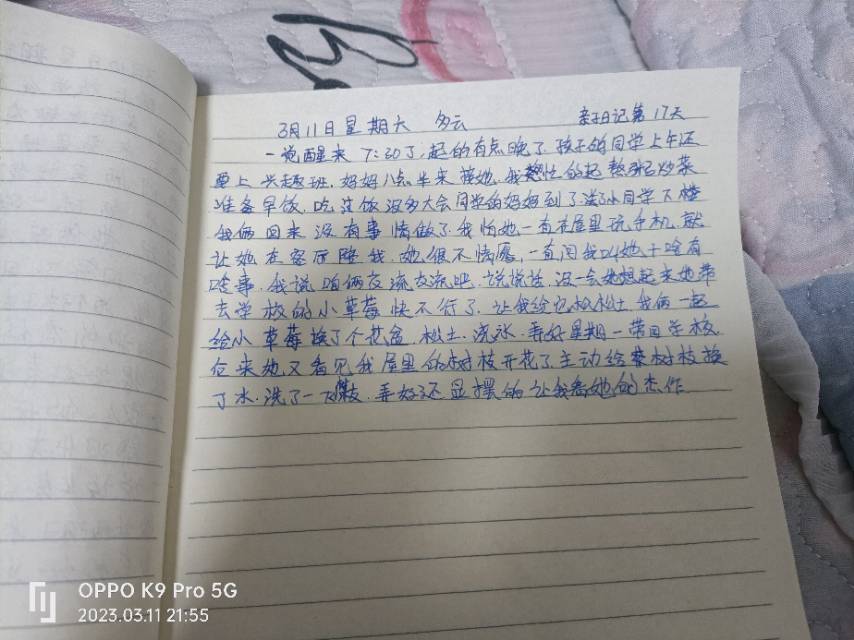 3月11日星期六 多云 亲子日记第17天
一觉醒来7:30了,起的有点晚了,孩子的同学上午还
要上兴趣班,妈妈八点半来接她,我慌忙的起熬粥炒菜
准备早饭,吃完饭没多大会同学的妈妈到了,送小同学下楼
我俩回来没有事情做了,我怕她一直在屋里玩手机,就
让她在客厅陪我,她很不情愿,一直问我叫她干啥有
啥事,我说咱俩交流交流吧,说说话,没一会她想起来她带
去学校的小草莓快不行了,让我给它松松土,我俩一起
给小草莓换了个花盆,松土,浇水,弄好星期一带回学校
后来她又看见我屋里的树枝开花了,主动给树枝换
了水,洗了一下枝,弄好还显摆的让我看她的杰作
OPPO K9 Pro 5G
2023.03.11 21:55